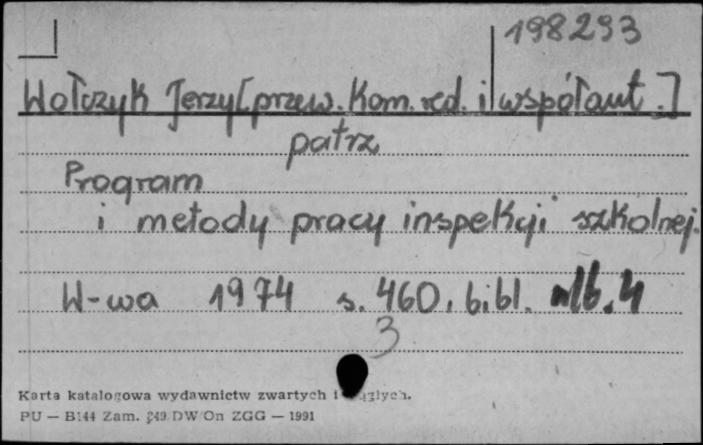 198293
Wołczyk Jerzy [przew. Kom. red. i współaut.]
patrz
Program
i metody pracy inspekcji szkolnej.
W-wa 1974 s. 460, bibl. nlb. 4
3
Karta katalogowa wydawnictw zwartych i ciągłych.
PU — B144 Zam. 249 DW/On ZGG — 1991